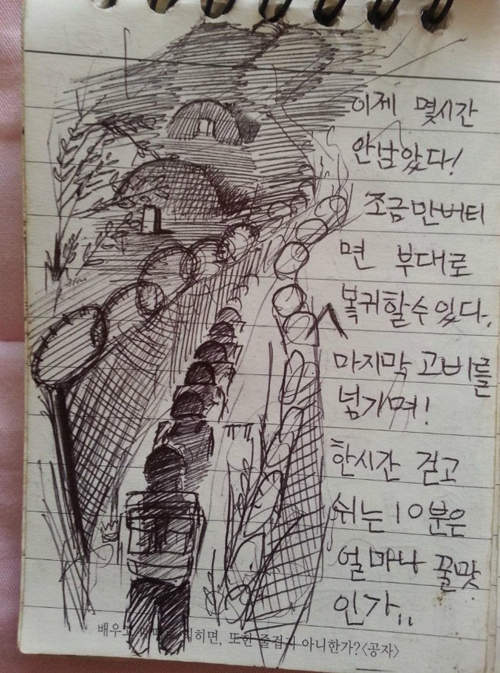 이제 몇시간
안남았다!
조금만버티
면 부대로
복귀할수있다.
마지막 고비를
넘기며!
한시간 걷고
쉬는 10분은
얼마나 꿀맛
인가..
배우고 익히면, 또한 즐겁지 아니한가?<공자>